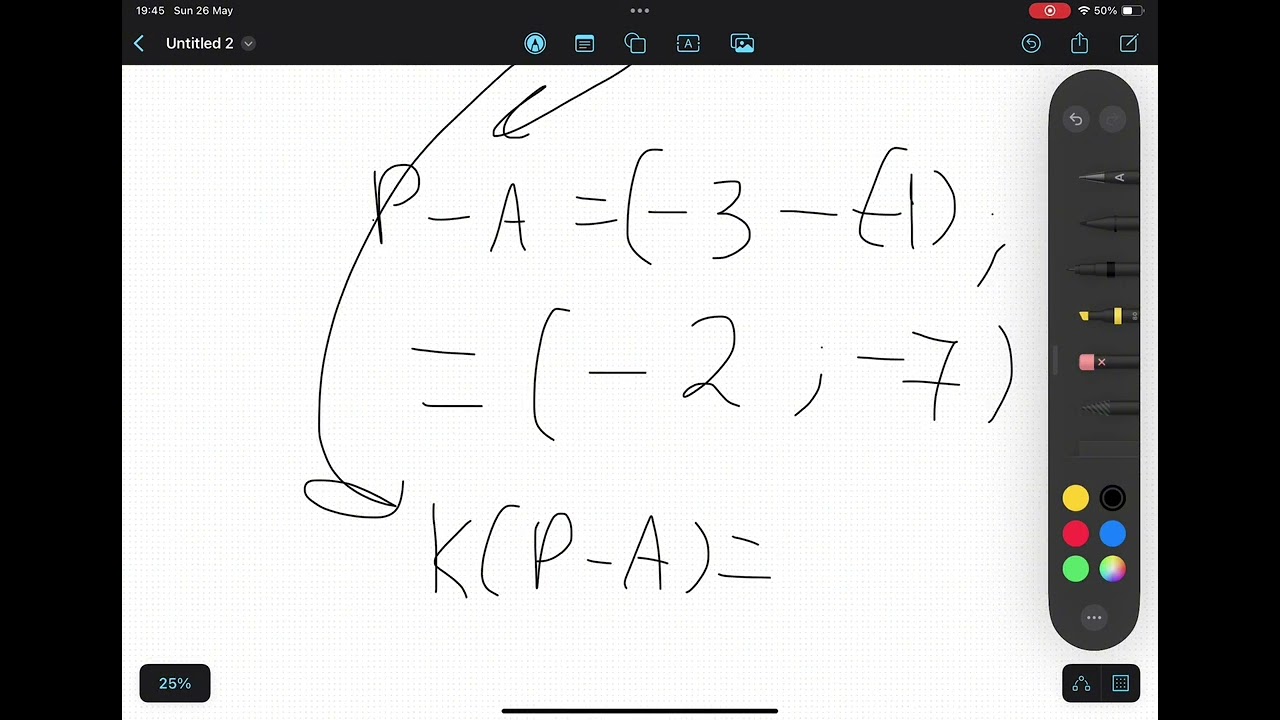 19:45 Sun 26 May
50%
Untitled 2
A
P - A = (-3 - (-1) ;
= (-2 ; -7)
K(P - A) =
25%